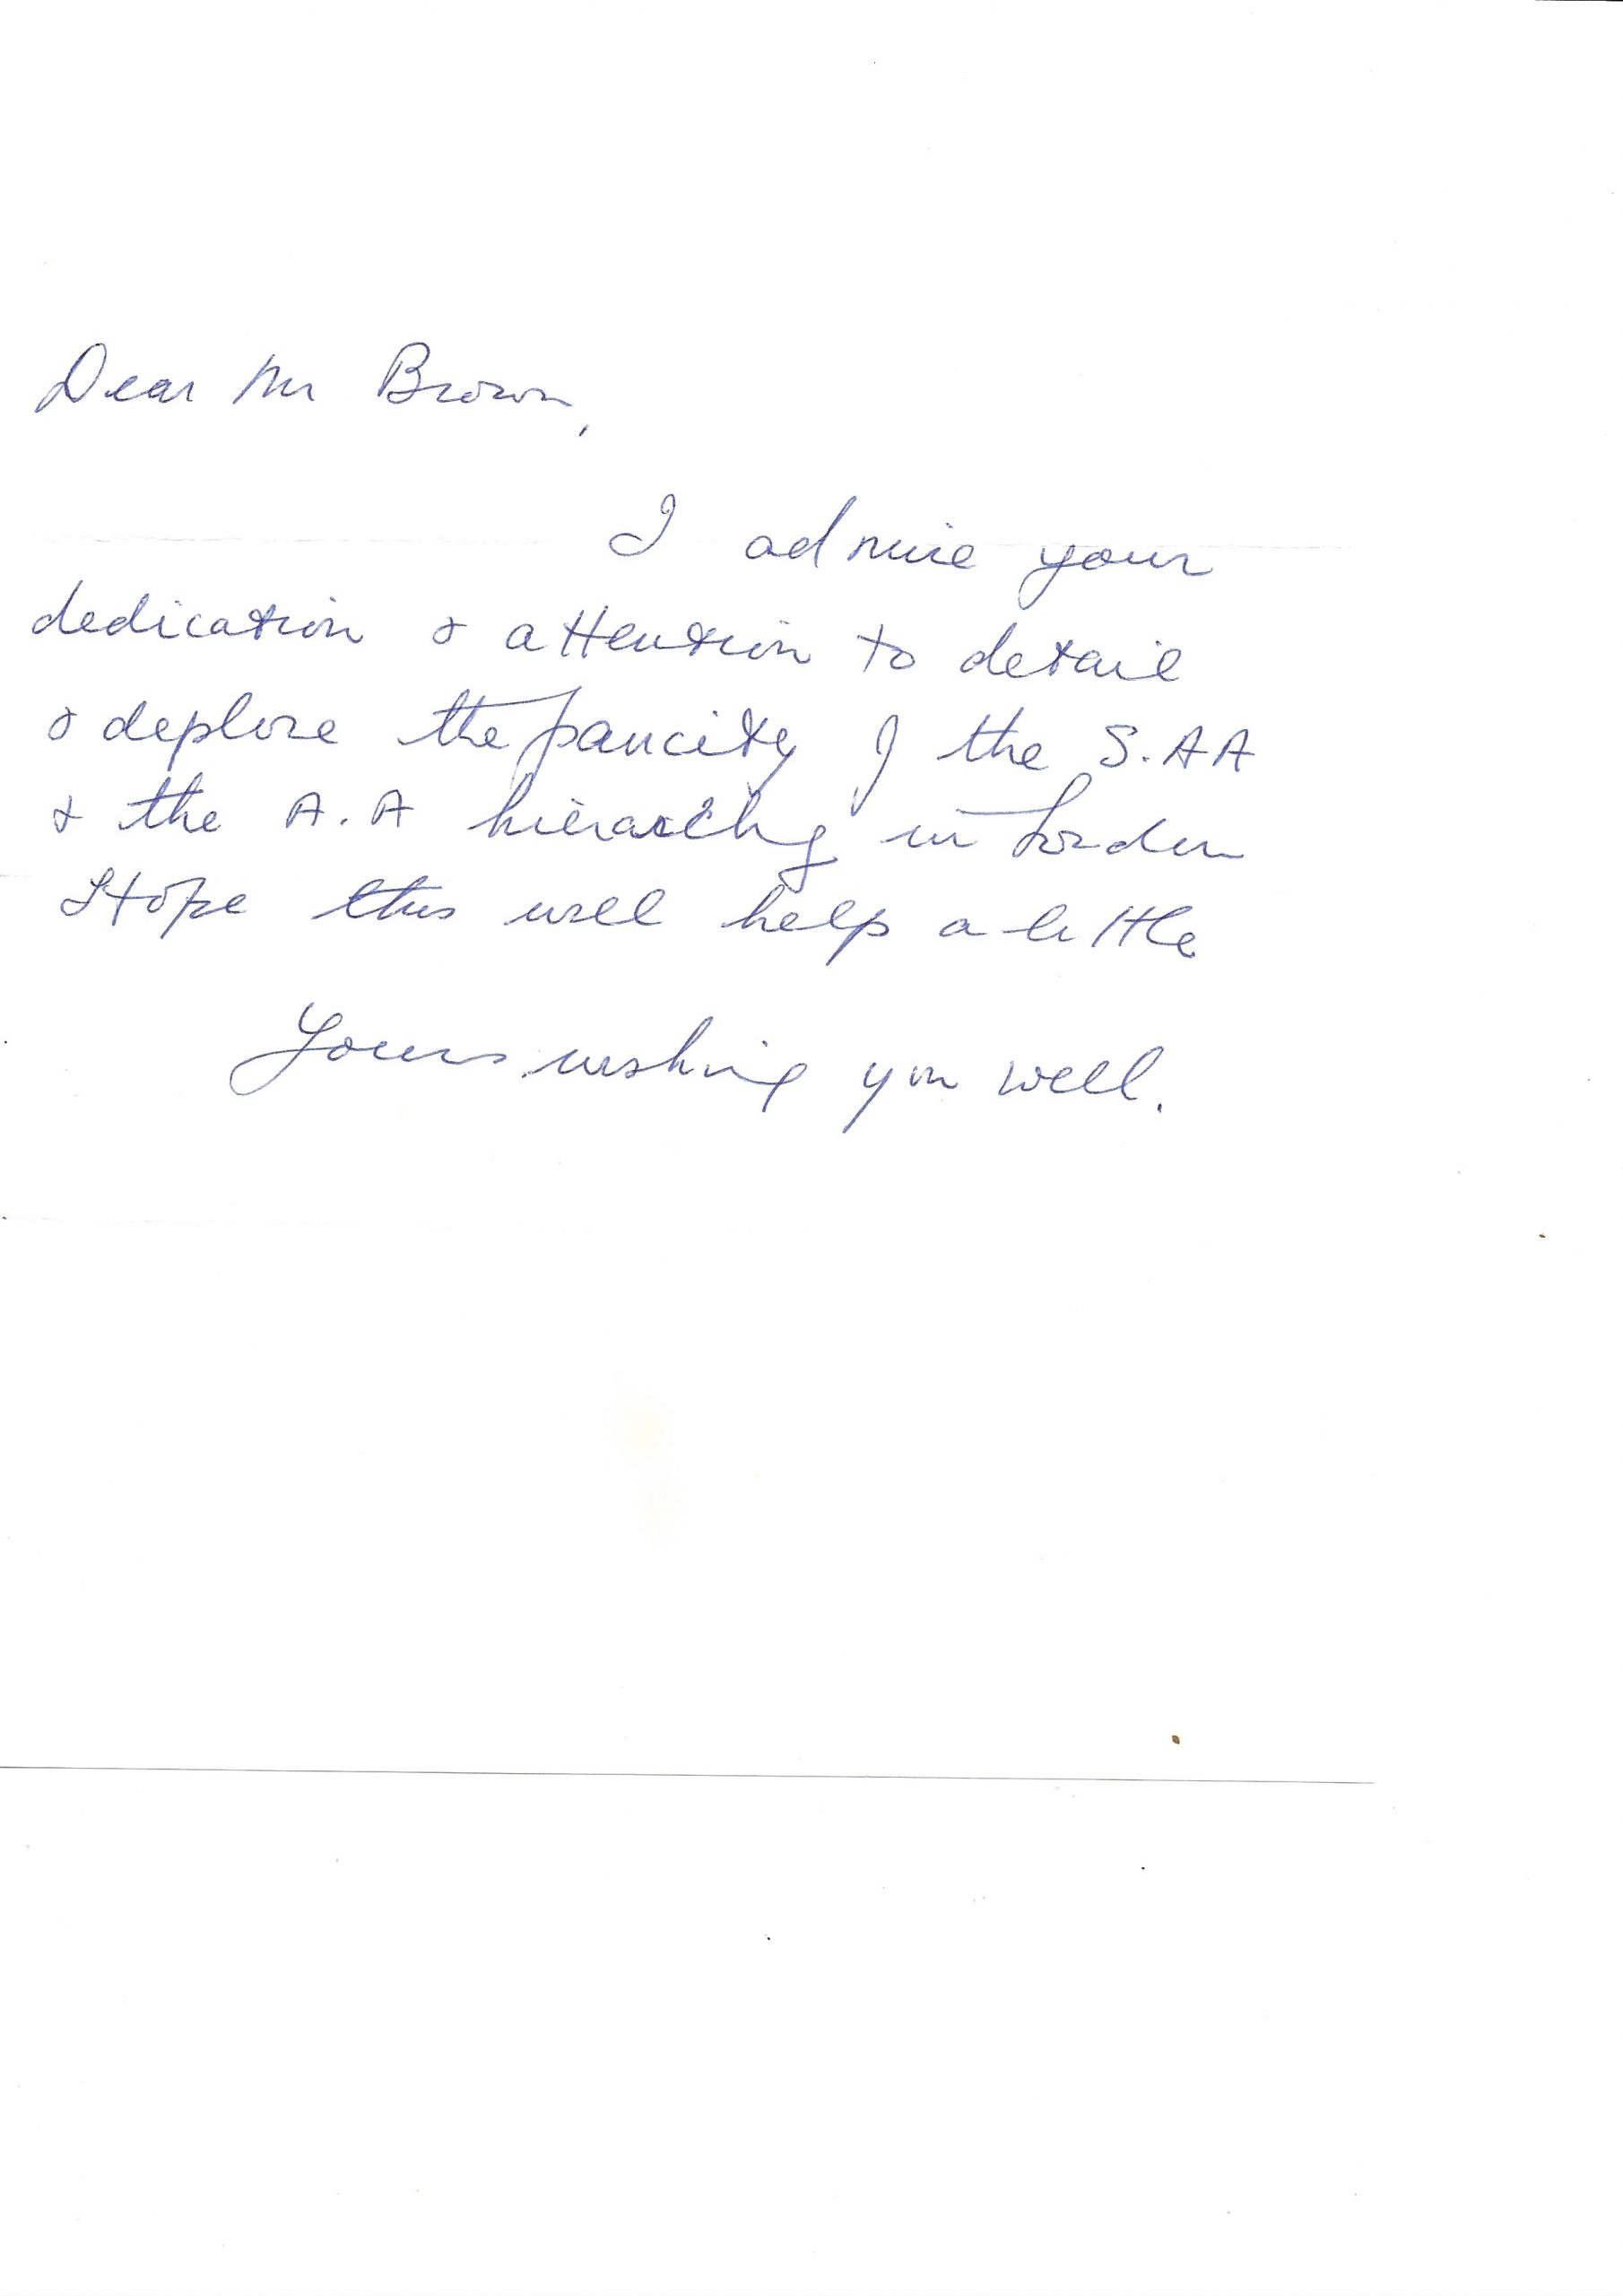 Dear Mr Brown,
I admire your
dedication & attention to detail
& deplore the paucity of the S.AA
& the A.A hierarchy in London
Hope this will help a little
Yours wishing you well.